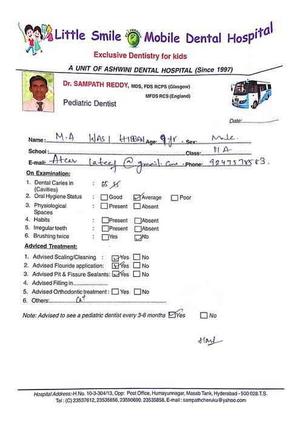 Little Smile Mobile Dental Hospital
Exclusive Dentistry for kids
A UNIT OF ASHWINI DENTAL HOSPITAL (Since 1997)
Dr. SAMPATH REDDY, MDS, FDS RCPS (Glasgow)
MFDS RCS (England)
Pediatric Dentist
Date:
Name: M.A WASI Age: 9yr Sex: Male
School: Class: IIA
E-mail: @gmail.com Phone:
On Examination:
1. Dental Caries in (Cavities) :
2. Oral Hygiene Status : Good Average Poor
3. Physiological Spaces : Present Absent
4. Habits : Present Absent
5. Irregular teeth : Present Absent
6. Brushing twice : Yes No
Adviced Treatment:
1. Advised Scaling/Cleaning : Yes No
2. Advised Flouride application: Yes No
3. Advised Pit & Fissure Sealants: Yes No
4. Advised Filling in
5. Advised Orthodontic treatment : Yes No
6. Others:
Note: Advised to see a pediatric dentist every 3-6 months Yes No
Hospital Address: H.No. 10-3-304/13, Opp: Post Office, Humayunnagar, Masab Tank, Hyderabad - 500 028.T.S.
Tel: (C) 23537612, 23535656, 23590690, 23535858, E-mail: sampathcheruku@yahoo.com